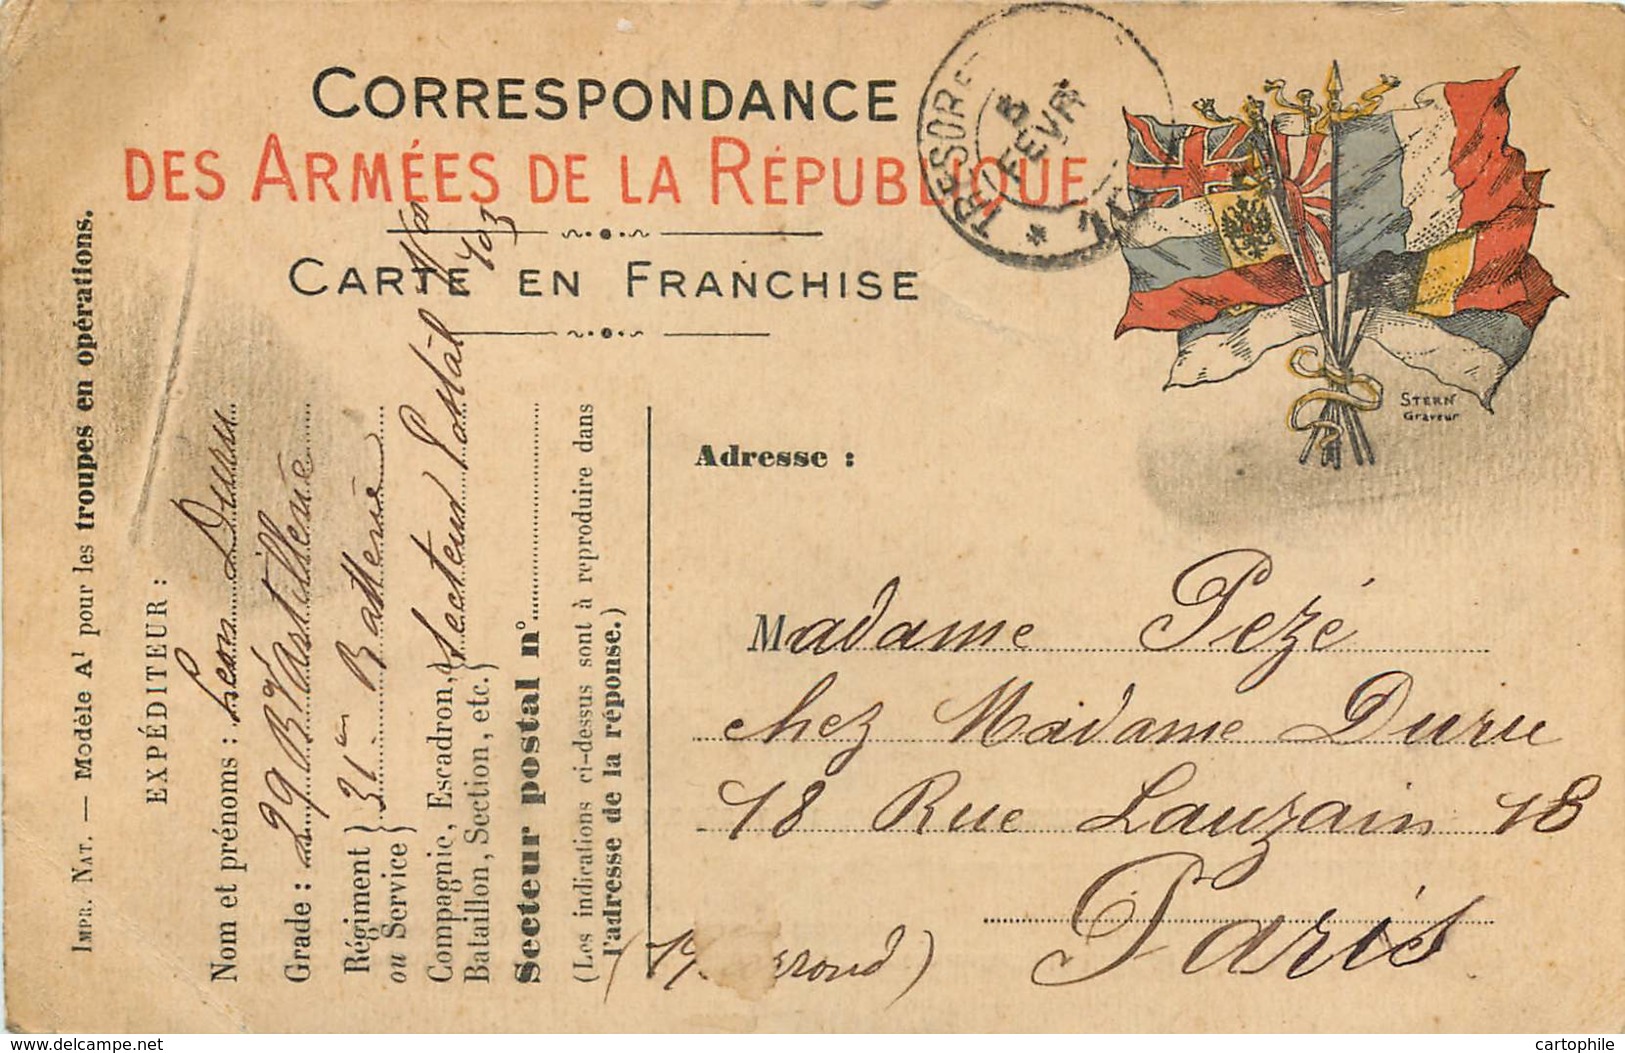 CORRESPONDANCE
DES ARMÉES DE LA RÉPUBLIQUE
CARTE EN FRANCHISE
TRESOR ET
5
FEVR
*
STERN
Graveur
IMPR. NAT. — Modèle A¹ pour les troupes en opérations.
EXPÉDITEUR :
Nom et prénoms : Leon Duru
Grade : 29 Rt d'artillerie
Régiment
ou Service } 31em Batterie
Compagnie, Escadron,
Bataillon, Section, etc. } Secteur Postal
No 103
Secteur postal n°
(Les indications ci-dessus sont à reproduire dans
l'adresse de la réponse.)
Adresse :
Madame Pezé
chez Madame Duru
18 Rue Lauzain 18
Paris